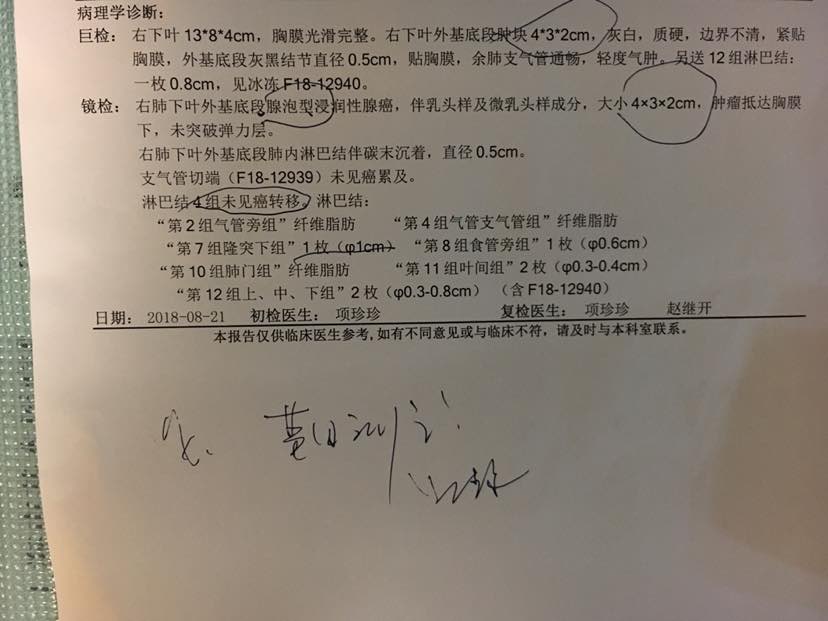 病理学诊断:
巨检: 右下叶 13*8*4cm，胸膜光滑完整。右下叶外基底段肿块 4*3*2cm，灰白，质硬，边界不清，紧贴
胸膜，外基底段灰黑结节直径 0.5cm，贴胸膜，余肺支气管通畅，轻度气肿。另送 12 组淋巴结:
一枚 0.8cm，见冰冻 F18-12940。
镜检: 右肺下叶外基底段腺泡型浸润性腺癌，伴乳头样及微乳头样成分，大小 4×3×2cm，肿瘤抵达胸膜
下，未突破弹力层。
右肺下叶外基底段肺内淋巴结伴碳末沉着，直径 0.5cm。
支气管切端（F18-12939）未见癌累及。
淋巴结 4 组未见癌转移。淋巴结:
“第 2 组气管旁组”纤维脂肪 “第 4 组气管支气管组”纤维脂肪
“第 7 组隆突下组”1 枚（φ1cm） “第 8 组食管旁组”1 枚（φ0.6cm）
“第 10 组肺门组”纤维脂肪 “第 11 组叶间组”2 枚（φ0.3-0.4cm）
“第 12 组上、中、下组”2 枚（φ0.3-0.8cm）（含 F18-12940）
日期: 2018-08-21 初检医生: 项珍珍 复检医生: 项珍珍 赵继开
本报告仅供临床医生参考,如有不同意见或与临床不符，请及时与本科室联系。